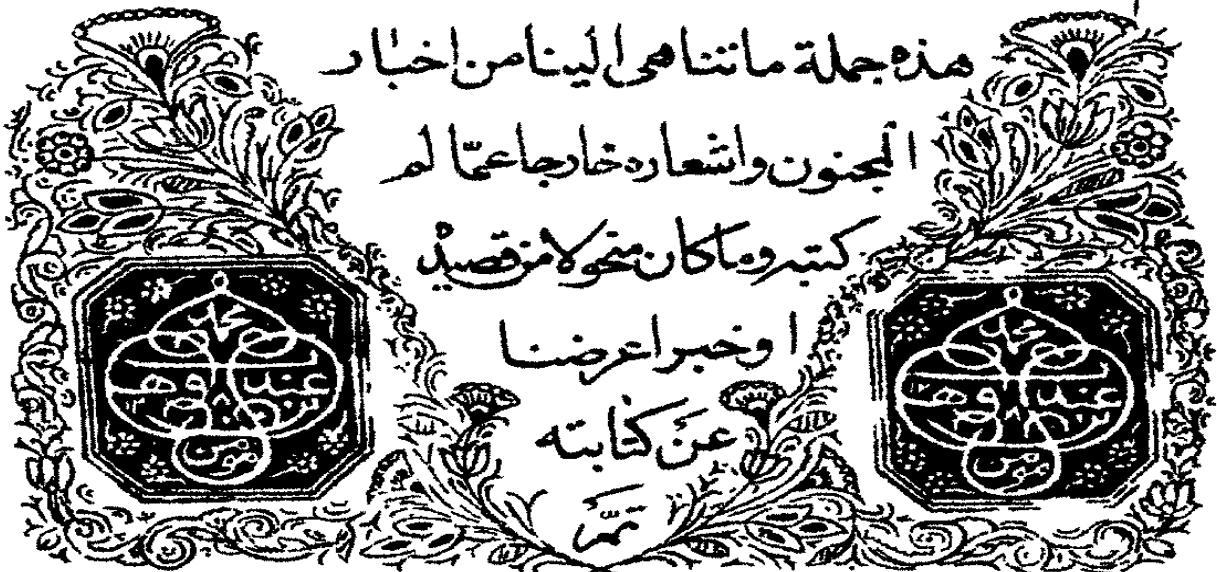 هذه جملة ما تناهى الينا من اخبار
المجنون واشعاره خارجا عمّا لم
نكتبه وما كان منحولا من قصيد
او خبر اعرضنا
عن كتابته
تمّ
محمد